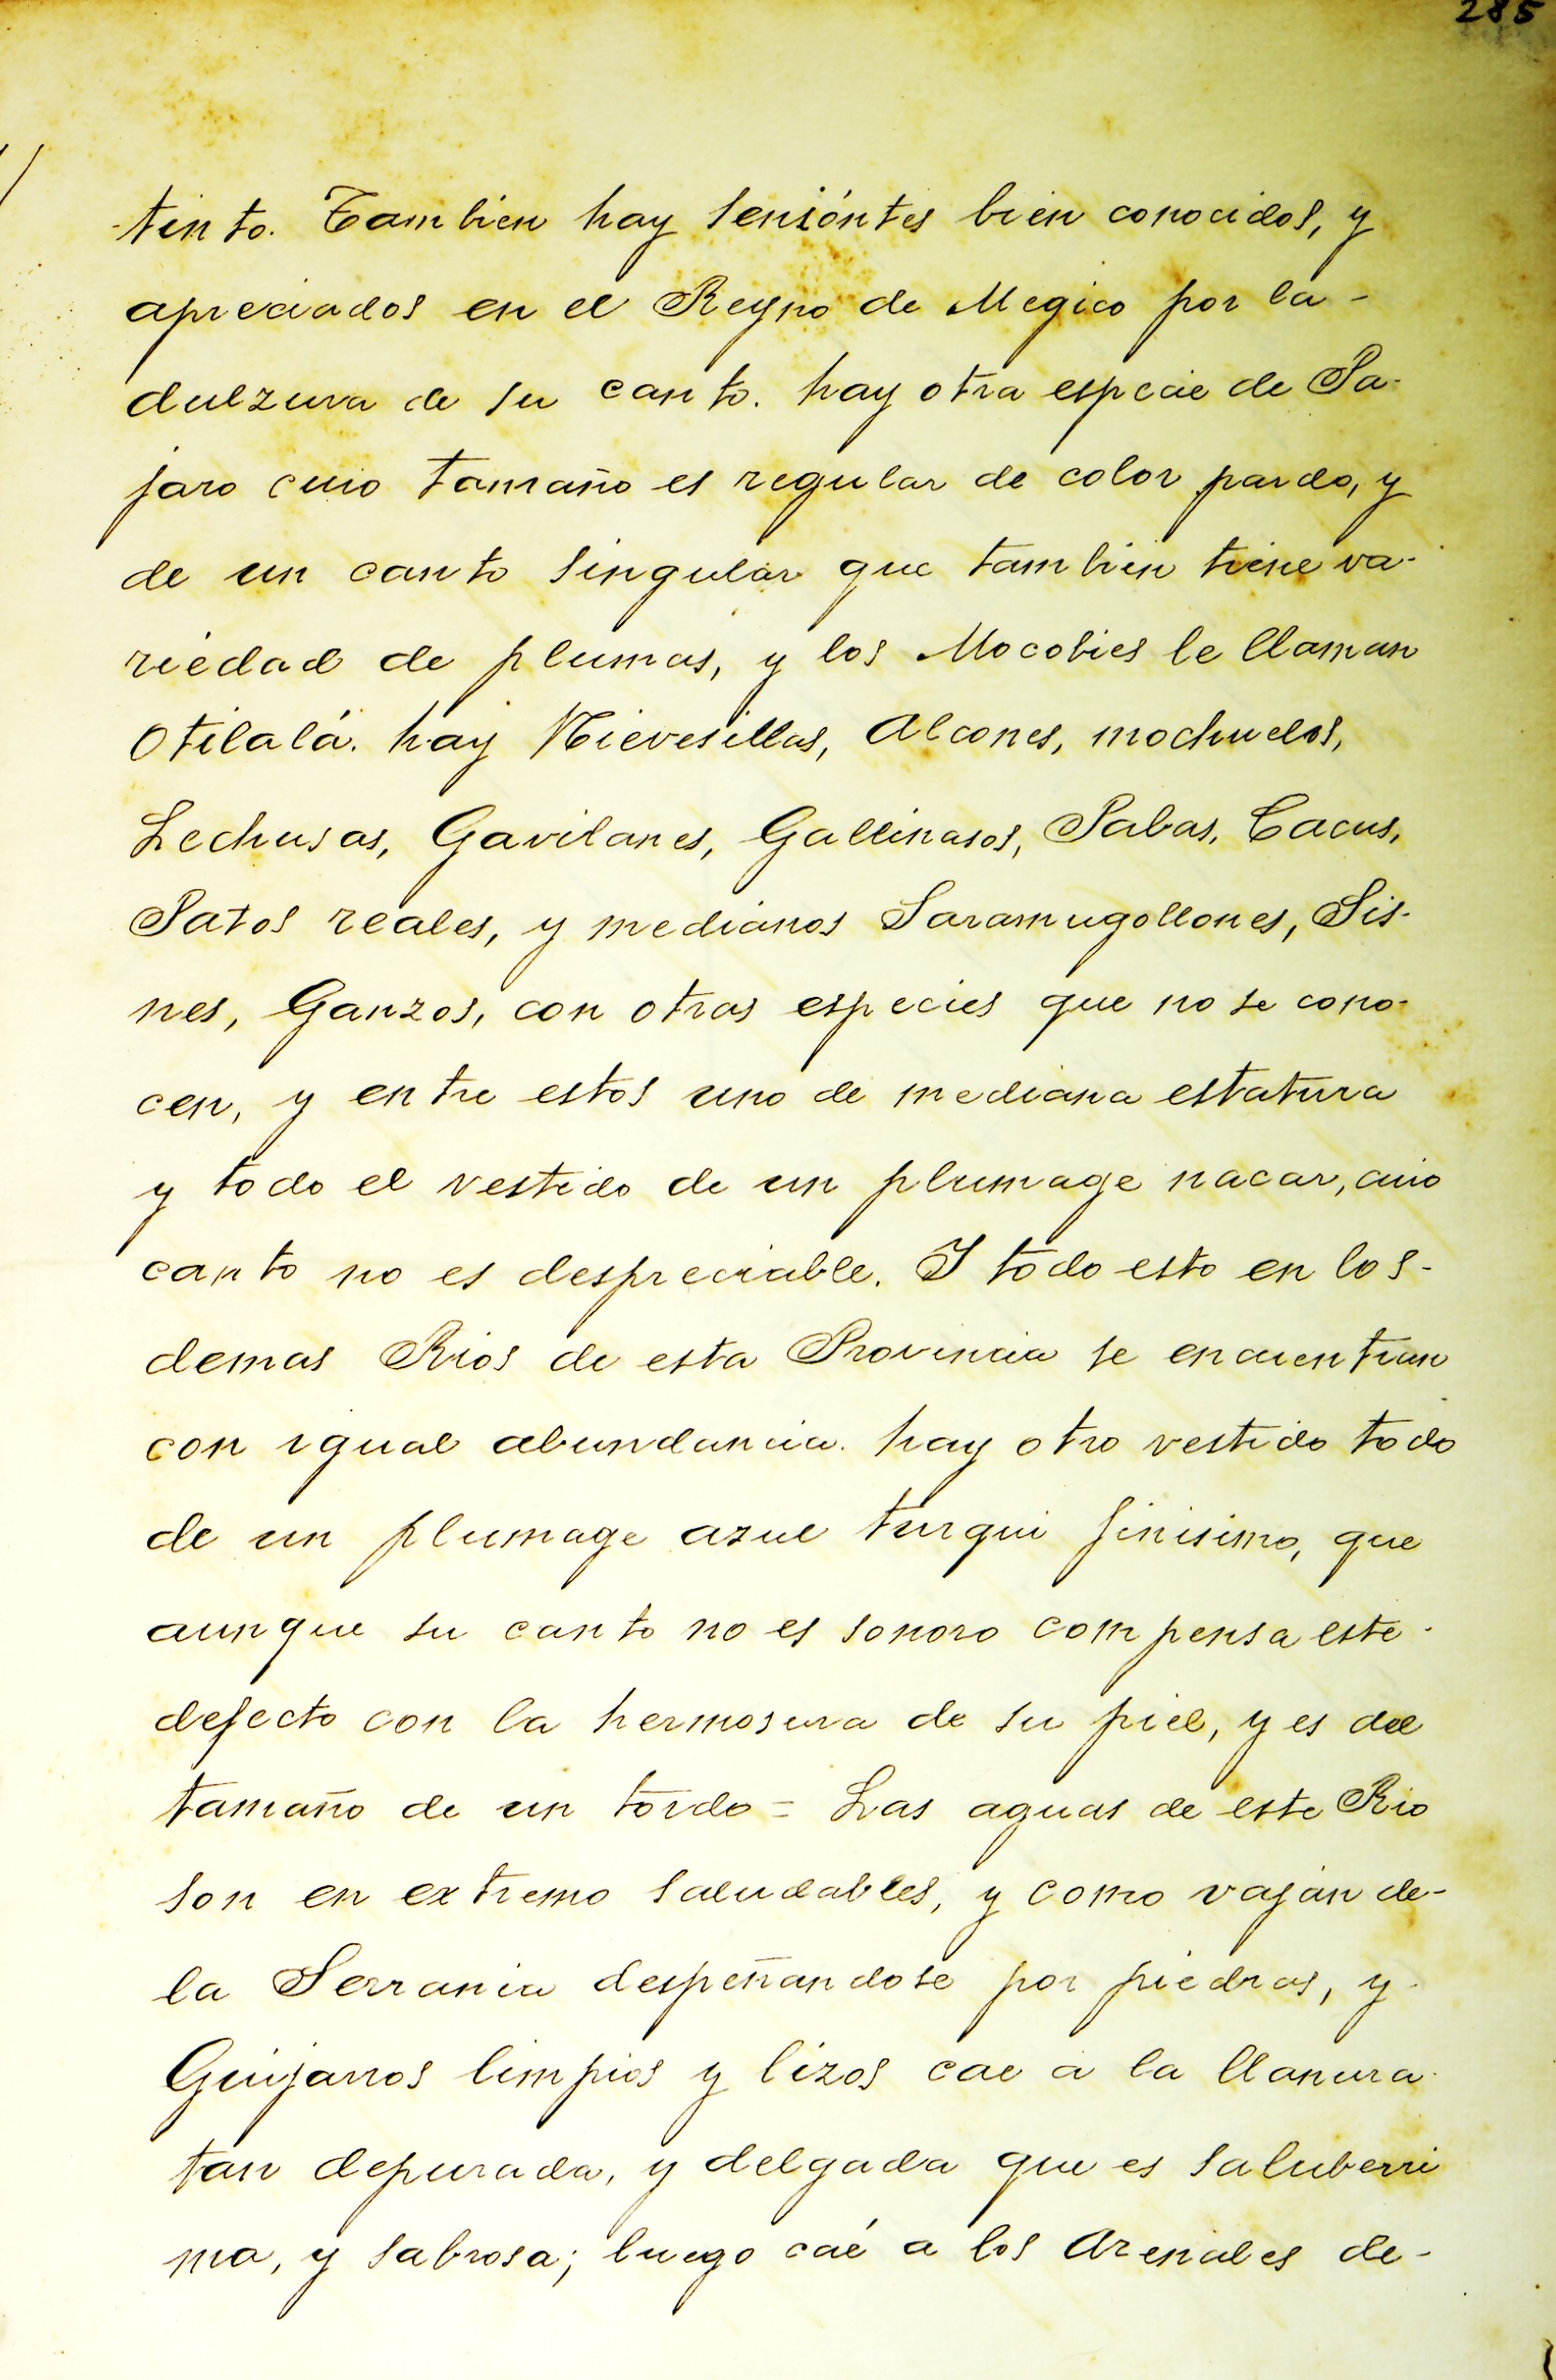 285
tinto. Tambien hay Senzóntes bien conocidos, y
apreciados en el Reyno de Megico por la-
dulzura de su canto. hay otra especie de Pa-
jaro cuio tamaño es regular de color pardo, y
de un canto singular que tambien tiene va-
riedad de plumas, y los Mocobies le llaman
Otilalá. hay Nievesillas, Alcones, mochuelos,
Lechusas, Gavilanes, Gallinasos, Pabas, Cacus,
Patos reales, y medianos Saramugollones, Sis-
nes, Ganzos, con otras especies que no se cono-
cen, y entre estos uno de mediana estatura
y todo el vestido de un plumage nacar, cuio
canto no es despreciable. I todo esto en los-
demas Rios de esta Provincia se encuentran
con igual abundancia. hay otro vestido todo
de un plumage azul turqui finisimo, que
aunque su canto no es sonoro compensa este-
defecto con la hermosura de su piel, y es del
tamaño de un tordo = Las aguas de este Rio
son en extremo saludables, y como vajan de-
la Serrania despeñandose por piedras, y-
Guijarros limpios y lizos cae a la llanura-
tan depurada, y delgada que es saluberri
ma, y sabrosa; luego caé a los Arenales de-